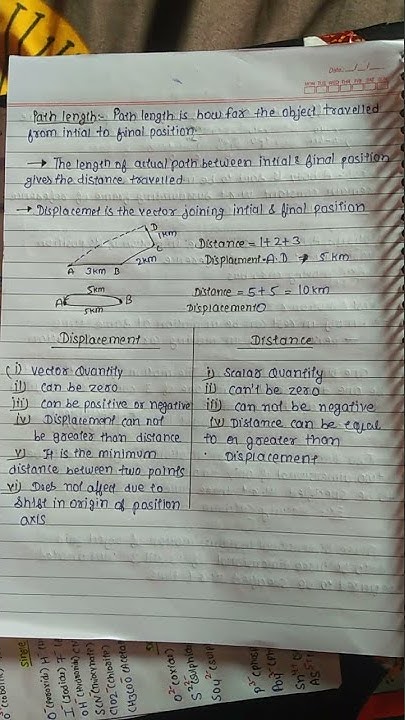 Date __/__/__
MON TUE WED THU FRI SAT SUN
Path length:- Path length is how far the object travelled
from intial to final position.
→ The length of actual path between intial & final position
gives the distance travelled
→ Displacemet is the vector joining intial & final position
D
1km
C
2km
A 3km B
Distance = 1+2+3
Displacment - A.D → 5 km
5km
A B
5km
Distance = 5+5 = 10km
Displacement 0
Displacement
(i) Vector Quantity
ii) can be zero
iii) can be positive or negative
iv) Displacement can not
be greater than distance
v) It is the minimum
distance between two points
vi) Does not affect due to
shift in origin of position
axis
Distance
i) Scalar Quantity
ii) can't be zero
iii) can not be negative
iv) Distance can be equal
to or greater than
Displacement